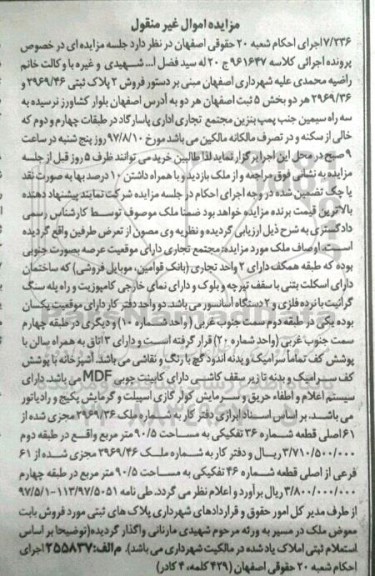 مزایده اموال غیر منقول
۷/۲۳۶اجرای احکام شعبه ۲۰ حقوقی اصفهان در نظر دارد جلسه مزایده ای در خصوص
پرونده اجرائی کلاسه ۹۶۱۶۴۷ ج ۲۰ له سید فضل ا... شهیدی و غیره با وکالت خانم
راضیه محمدی علیه شهرداری اصفهان مبنی بر دستور فروش ۲ پلاک ثبتی ۲۹۶۹/۴۶ و
۲۹۶۹/۳۶ هر دو بخش ۵ ثبت اصفهان هر دو به آدرس اصفهان بلوار کشاورز نرسیده به
سه راه سیمین جنب پمپ بنزین مجتمع تجاری اداری پاسارگاد در طبقات چهارم و دوم که
خالی از سکنه و در تصرف مالکانه مالکین می باشد مورخ ۹۷/۸/۱۰ روز پنج شنبه در ساعت
۹ صبح در محل این اجرا برگزار نماید لذا طالبین خرید می توانند ظرف ۵ روز قبل از جلسه
مزایده به نشانی فوق مراجعه و از ملک بازدید و با همراه داشتن ۱۰ درصد بها به صورت نقد
یا چک تضمین شده در وجه اجرای احکام در جلسه مزایده شرکت نمایند پیشنهاد دهنده
بالاترین قیمت برنده مزایده خواهد بود ضمنا ملک موصوف توسط کارشناس رسمی
دادگستری به شرح ذیل ارزیابی گردیده و نظریه وی مصون از تعرض طرفین واقع گردیده
است. اوصاف ملک مورد مزایده: مجتمع تجاری دارای موقعیت عرصه بصورت جنوبی
بوده که طبقه همکف دارای ۲ واحد تجاری (بانک قوامین، موبایل فروشی) که ساختمان
دارای اسکلت بتنی با سقف تیرچه و بلوک و دارای نمای خارجی کامپوزیت و راه پله سنگ
گرانیت با نرده فلزی و ۲ دستگاه آسانسور می باشد. دو واحد دفتر کار دارای موقعیت یکسان
بوده یکی در طبقه دوم سمت جنوب غربی (واحد شماره ۱۰) و دیگری در طبقه چهارم
سمت جنوب غربی (واحد شماره ۲۰) قرار گرفته است و دارای ۳ اتاق به همراه سالن با
پوشش کف تماماً سرامیک و بدنه اندود گچ با رنگ و نقاشی می باشد. آشپزخانه با پوشش
کف سرامیک و بدنه تا زیر سقف کاشی دارای کابینت چوبی MDF می باشد. دارای
سیستم اعلام و اطفاء حریق و سرمایش کولر گازی اسپیلت و گرمایش پکیج و رادیاتور
می باشند. بر اساس اسناد ابرازی دفتر کار به شماره ملک ۲۹۶۹/۳۶ مجزی شده از
۶۱ اصلی قطعه شماره ۳۶ تفکیکی به مساحت ۹۰/۵ متر مربع واقع در طبقه دوم
۳/۷۱۰/۵۰۰/۰۰۰ ریال و دفتر کار به شماره ملک ۲۹۶۹/۴۶ مجزی شده از ۶۱
فرعی از اصلی قطعه شماره ۴۶ تفکیکی به مساحت ۹۰/۵ متر مربع در طبقه چهارم
۳/۸۰۰/۰۰۰/۰۰۰ ریال برآورد و اعلام نظر می گردد. طی نامه ۱۱۳/۹۷/۵۰۵۱-۹۷/۵/۱
از طرف مدیر کل امور حقوق و قراردادهای شهرداری پلاک های ثبتی مورد فروش بابت
معوض ملک در مسیر به ورثه مرحوم شهیدی مارنانی واگذار گردیده(توضیحا بر اساس
استعلام ثبتی املاک یاد شده در مالکیت شهرداری می باشد). م الف:۲۵۵۸۳۷ اجرای
احکام شعبه ۲۰ حقوقی اصفهان (۴۲۹ کلمه، ۴ کادر)